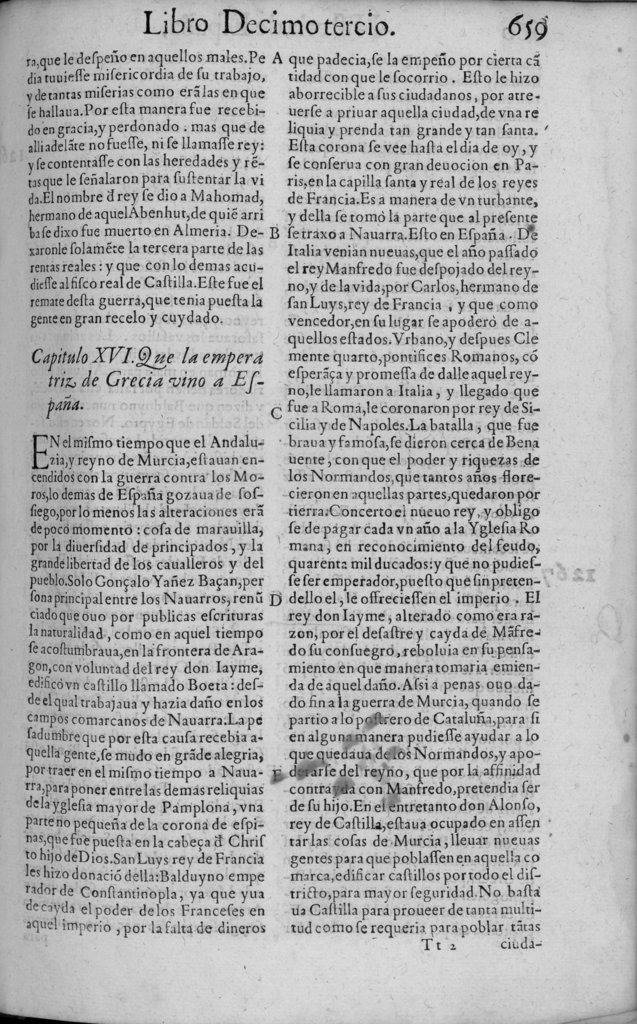 Libro Decimotercio. 659
ra,que le despeño en aquellos males.Pe
dia tuuiesse misericordia de su trabajo,
y de tantas miserias como erã las en que
se hallaua.Por esta manera fue recebi-
do en gracia,y perdonado . mas que de
alli adelãte no fuesse, ni se llamasse rey:
y se contentasse con las heredades y rẽ-
tas que le señalaron para sustentar la vi
da.El nombre đ rey se dio a Mahomad,
hermano de aquel Abenhut,de quiẽ arri
ba se dixo fue muerto en Almeria. De-
xaronle solamẽte la tercera parte de las
rentas reales : y que con lo demas acu-
diesse al fisco real de Castilla.Este fue el
remate desta guerra,que tenia puesta la
gente en gran recelo y cuydado.
Capitulo XVI.Que la empera
triz de Grecia vino a Es-
paña.
EN el mismo tiempo que el Andalu-
zia,y reyno de Murcia,estauan en-
cendidos con la guerra contra los Mo-
ros,lo demas de España gozaua de sos-
siego,por lo menos las alteraciones erã
de poco momento : cosa de marauilla,
por la diuersidad de principados, y la
grande libertad de los caualleros y del
pueblo.Solo Gonçalo Yañez Baçan,per
sona principal entre los Nauarros,renũ
ciado que ouo por publicas escrituras
la naturalidad , como en aquel tiempo
se acostumbraua,en la frontera de Ara-
gon,con voluntad del rey don Iayme,
edificò vn castillo llamado Boeta : des-
de el qual trabajaua y hazia daño en los
campos comarcanos de Nauarra.La pe
sadumbre que por esta causa recebia a-
quella gente,se mudo en grãde alegria,
por traer en el mismo tiempo a Naua-
rra,para poner entre las demas reliquias
de la yglesia mayor de Pamplona, vna
parte no pequeña de la corona de espi-
nas,que fue puesta en la cabeça đ Chris
to hijo de Dios.San Luys rey de Francia
les hizo donació della:Balduyno empe
rador de Constantinopla, ya que yua
de cayda el poder de los Franceses en
aquel imperio , por la falta de dineros
A que padecia,se la empeño por cierta cã
tidad con que le socorrio . Esto le hizo
aborrecible a sus ciudadanos , por atre-
uerse a priuar aquella ciudad,de vna re
liquia y prenda tan grande y tan santa.
Esta corona se vee hasta el dia de oy, y
se conserua con gran deuocion en Pa-
ris,en la capilla santa y real de los reyes
de Francia.Es a manera de vn turbante,
y della se tomò la parte que al presente
B se traxo a Nauarra.Esto en España . De
Italia venian nueuas,que el año passado
el rey Manfredo fue despojado del rey-
no,y de la vida,por Carlos,hermano de
san Luys,rey de Francia , y que como
vencedor,en su lugar se apoderò de a-
quellos estados.Vrbano,y despues Cle
mente quarto,pontifices Romanos, cõ
esperãça y promessa de dalle aquel rey-
no,le llamaron a Italia , y llegado que
C fue a Roma,le coronaron por rey de Si-
cilia y de Napoles.La batalla , que fue
braua y famosa,se dieron cerca de Bena
uente, con que el poder y riquezas de
los Normandos,que tantos años flore-
cieron en aquellas partes,quedaron por
tierra.Concerto el nueuo rey, y obligo
se de pagar cada vn año a la Yglesia Ro
mana , en reconocimiento del feudo,
quarenta mil ducados:y que no pudies-
se ser emperador,puesto que sin preten-
D dello el , le offreciessen el imperio . El
rey don Iayme, alterado como era ra-
zon, por el desastre y cayda de Mãfre-
do su consuegro, reboluia en su pensa-
miento en que manera tomaria emien-
da de aquel daño.Assi a penas ouo da-
do fin a la guerra de Murcia, quando se
partio a lo postrero de Cataluña,para si
en alguna manera pudiesse ayudar a lo
que quedaua de los Normandos,y apo-
E derarse del reyno, que por la affinidad
contrayda con Manfredo,pretendia ser
de su hijo.En el entretanto don Alonso,
rey de Castilla,estaua ocupado en assen
tar las cosas de Murcia , lleuar nueuas
gentes para que poblassen en aquella co
marca,edificar castillos por todo el dis-
tricto,para mayor seguridad.No basta
ua Castilla para proueer de tanta multi-
tud como se requeria para poblar tãtas
Tt 2 ciuda-